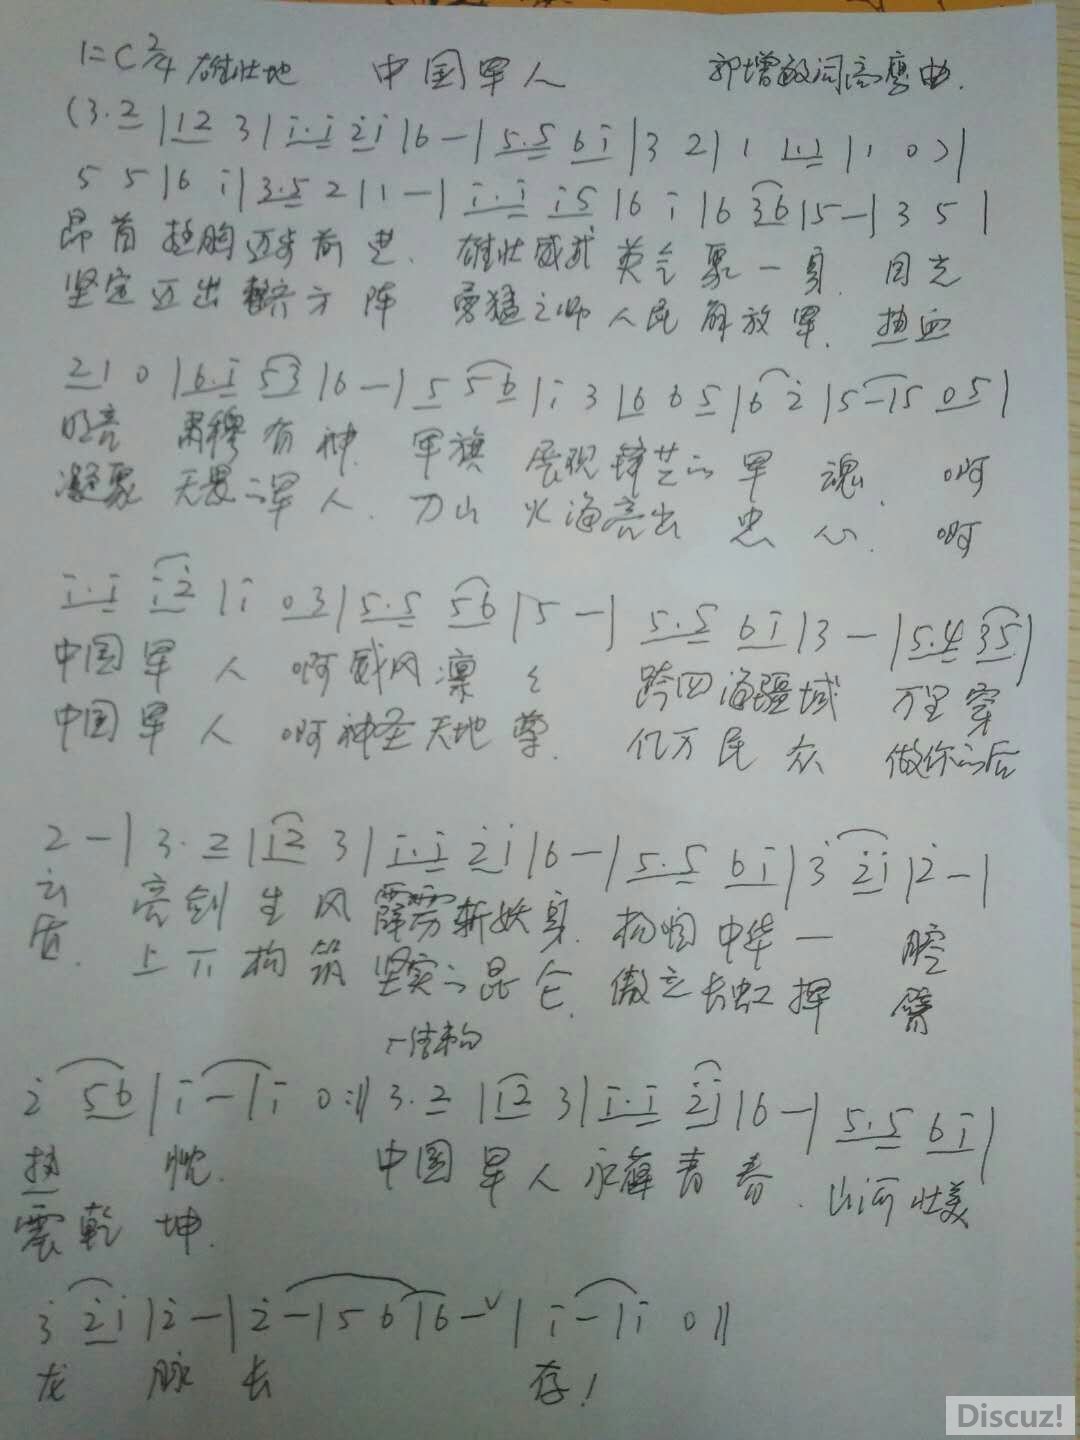 1=C 2/4 雄壮地 中国军人 郭增敏词高弯曲.
(3.2|12 3|i.i 2i|6-|5.5 6i|3 2|1 1.1|1 0)|
5 5|6 i|3.5 2|1-|i.i i5|6 i|6 36|5-|3 5|
昂首挺胸迈步前进. 雄壮威武英气聚一身. 目光
坚定迈出整齐方阵 勇猛之师人民解放军. 热血
21 0|6.i 53|6-|5 56|i 3|6 6 5|6 2|5-|5 05|
明亮 肃穆有神. 军旗展现锋芒的军魂. 啊
凝聚 无畏的军人. 刀山火海亮出忠心. 啊
i.i i2|i 03|5.5 56|5-|5.5 6i|3-|5.4 35|
中国军人啊威风凛々 跨四海疆域 万里穿
中国军人啊神圣天地尊. 亿万民众 做你的后
2-|3.2|12 3|i.i 2i|6-|5.5 6i|3 2i|2-|
云 亮剑生风霹雳斩妖身. 扬中华一腔
盾. 上下构筑坚实的昆仑. 傲立长虹挥臂
结束句
2 56|i-|i 0:‖3.2|12 3|i.i 2i|6-|5.5 6i|
热忱. 中国军人永葆青春. 山河壮美
震乾坤.
3 2i|2-|2-|5 6|6-∨|i-|i 0‖
龙脉长存!
Discuz!